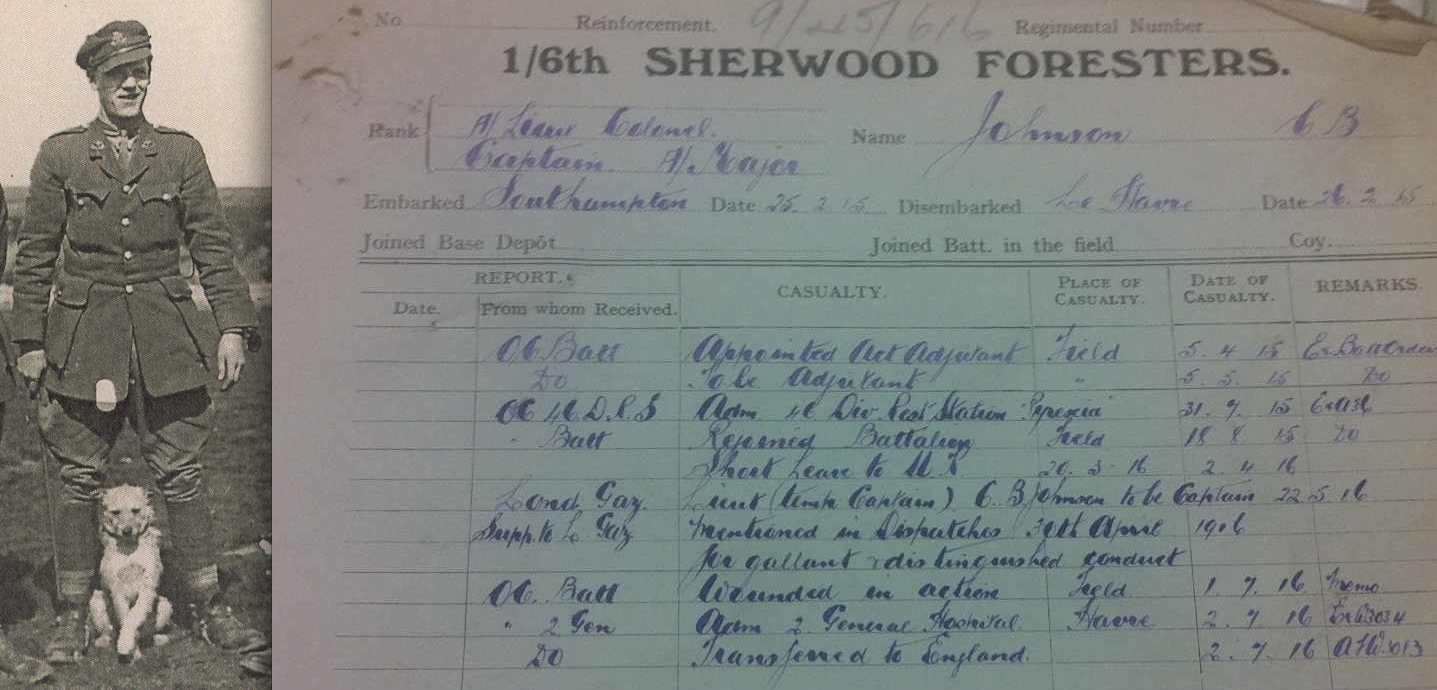 No Reinforcement. 9/245/616 Regimental Number
1/6th SHERWOOD FORESTERS.
Rank A/ Lieut Colonel. Name Johnson C B
Captain A/ Major
Embarked Southampton Date 25. 2 15 Disembarked Le Havre Date 26. 2 15
Joined Base Depôt Joined Batt. in the field Coy.
REPORT. CASUALTY. PLACE OF CASUALTY. DATE OF CASUALTY. REMARKS.
Date. From whom Received.
OC Batt Appointed Act Adjutant Field 5. 4 15
Do To be Adjutant " 5. 5. 15 Do
OC 46 D.R.S Adm 46 Div. Rest Station 31. 7 15
" Batt Rejoined Battalion Field 18 8 15 Do
Short Leave to U.K 20. 3 16 2. 4 16
Lond Gaz. Lieut (temp Captain) C. B. Johnson to be Captain 22 5 16
Supp. to L. Gaz Mentioned in Dispatches 30th April 1916
for gallant & distinguished conduct
OC. Batt Wounded in action Field 1. 7. 16 Memo
" 2 Gen Adm 2 General Hospital Havre 2. 7 16
Do Transferred to England. 2. 7 16